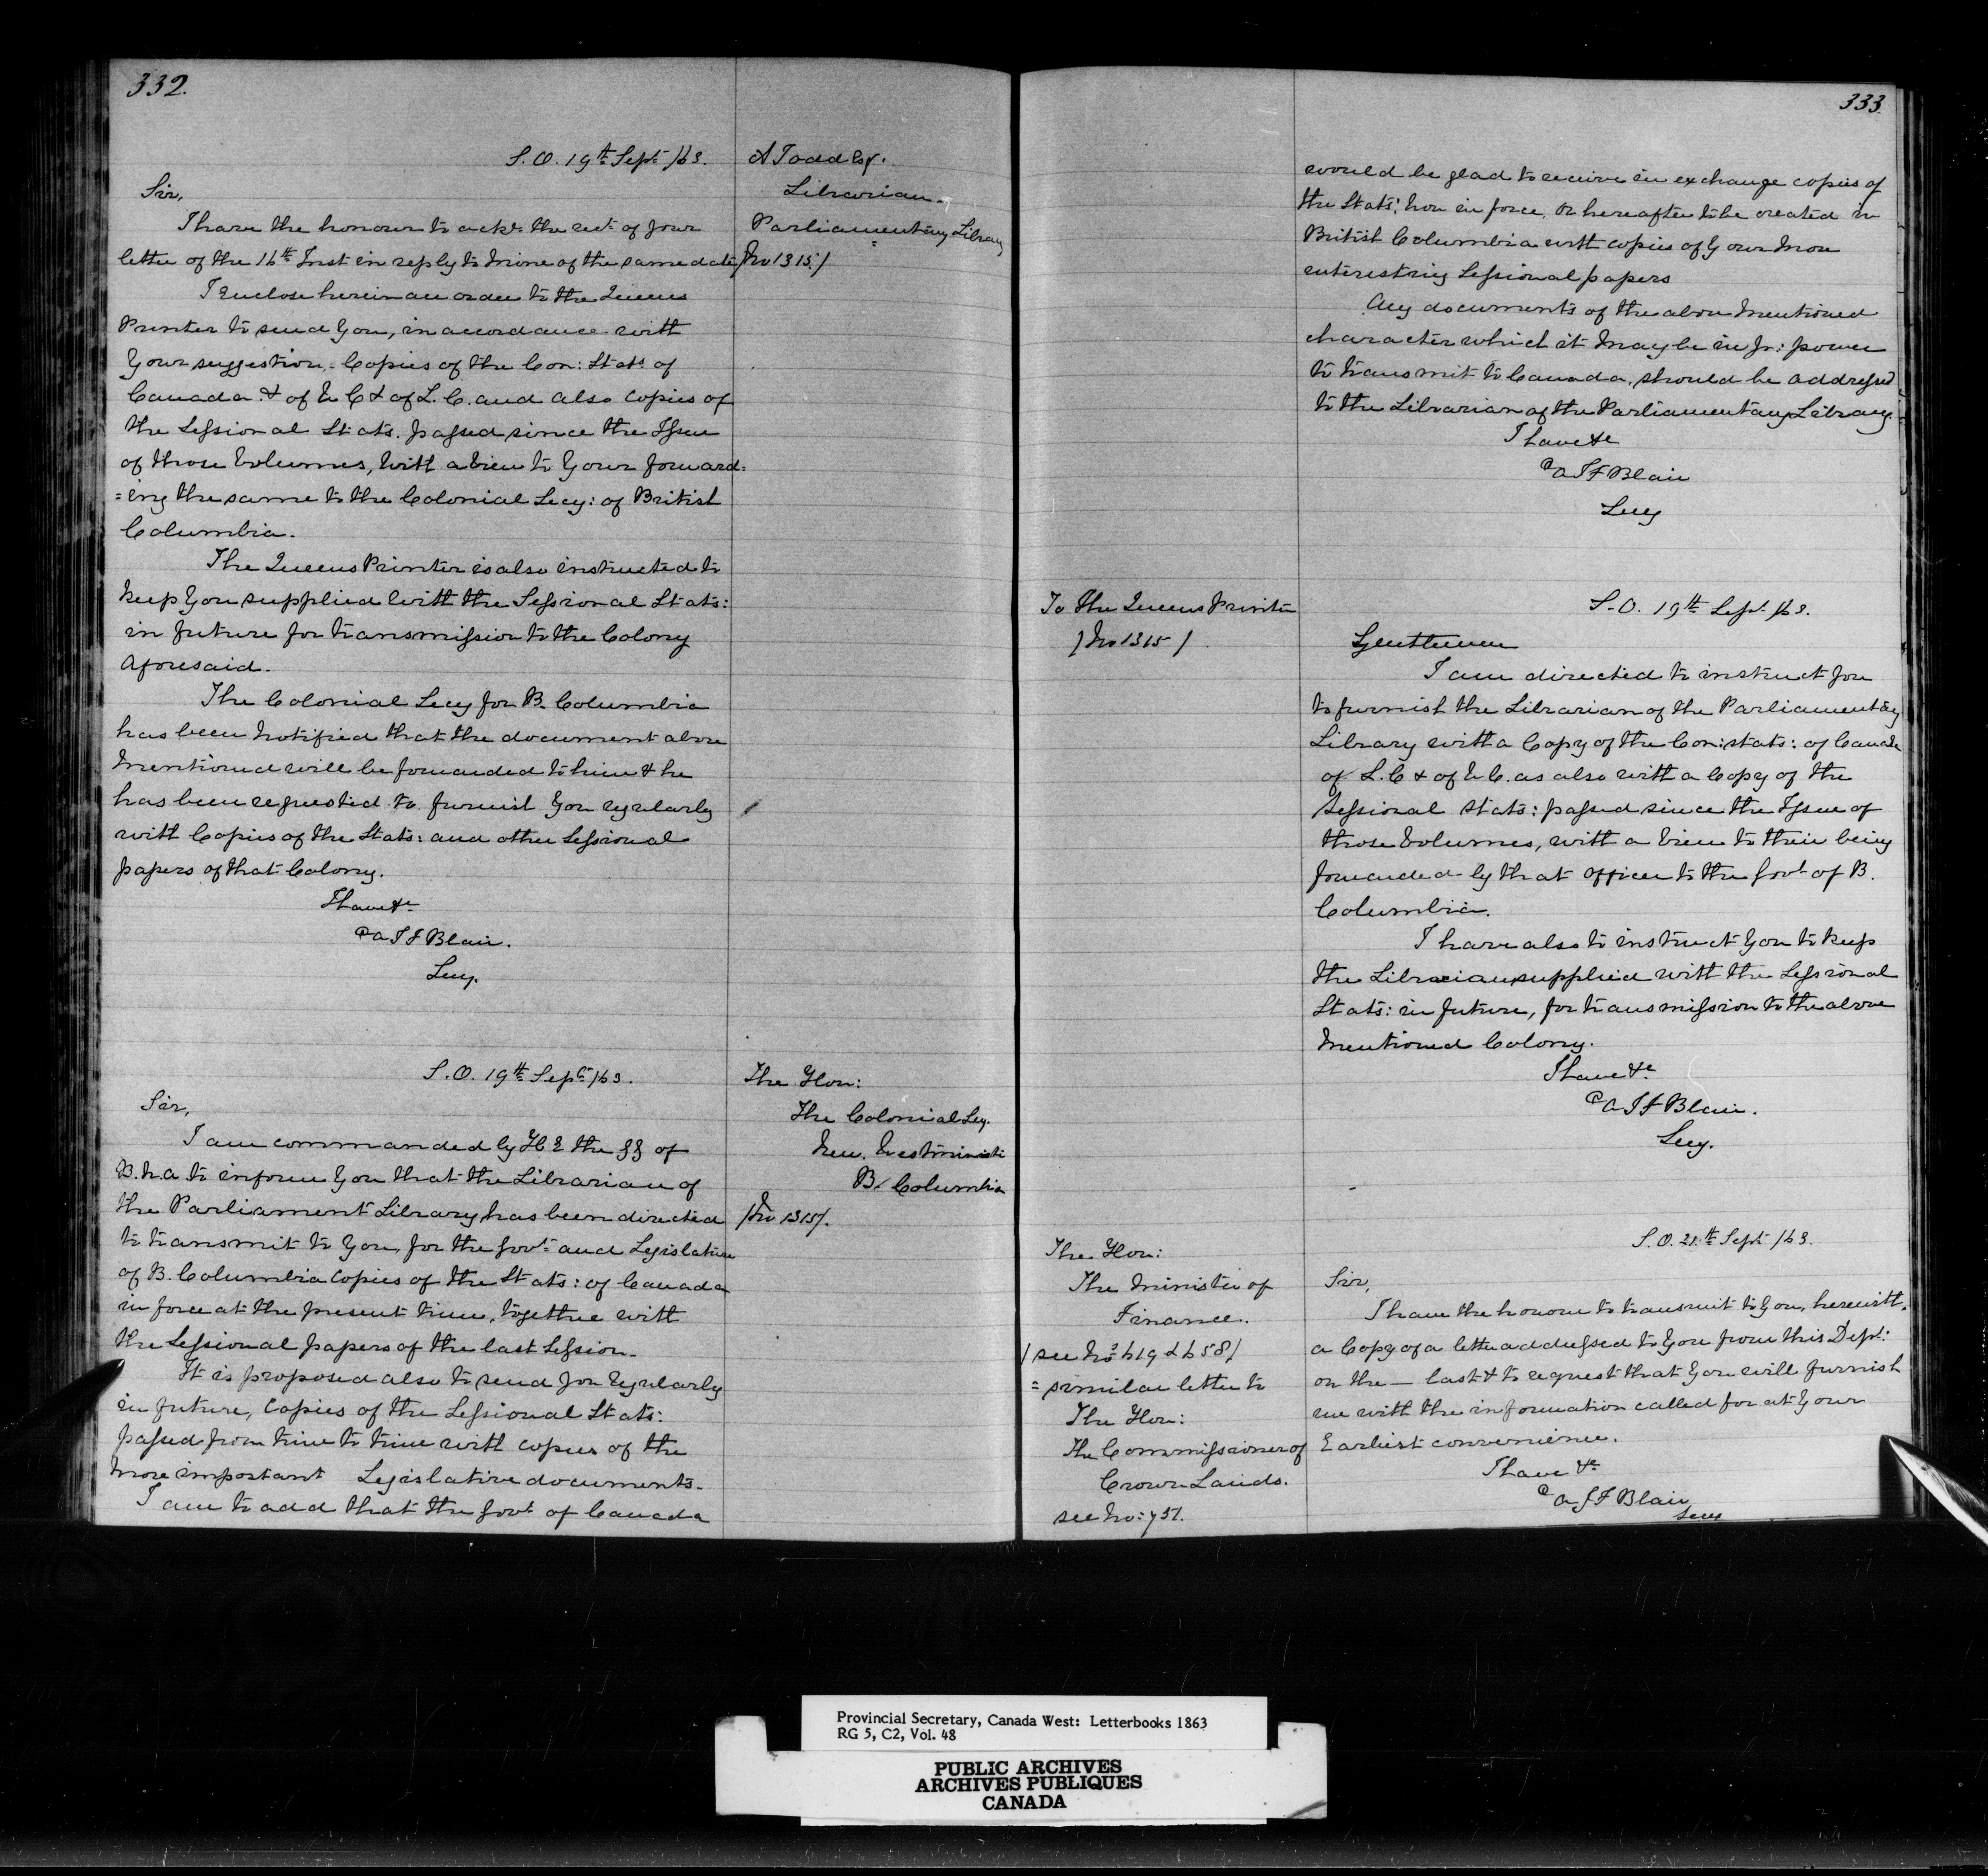 332.
S.O. 19th Sept /63.
A Todd Esq.
Librarian
Parliamentary Library
/No 1315/
Sir,
I have the honour to ackn the rect of your
letter of the 16th Inst in reply to mine of the same date
I Enclose herein an order to the Queens
Printer to send You, in accordance with
Your suggestion, Copies of the Con: Stats of
Canada & of U C & of L. C. and also Copies of
the Sessional Stats. passed since the Issue
of those Volumes, with a view to Your forward=
=ing the same to the Colonial Secy: of British
Columbia.
The Queens Printer is also instructed to
keep You supplied with the Sessional Stats:
in future for transmission to the Colony
aforesaid.
The Colonial Secy for B. Columbia
has been notified that the document above
mentioned will be forwarded to him & he
has been requested to furnish You regularly
with Copies of the Stats: and other Sessional
papers of that Colony.
I have &c
A J F Blair.
Secy.
S.O. 19th Sept /63.
The Hon:
The Colonial Secy.
New Westminster
B. Columbia
/No 1315/.
Sir,
I am commanded by H E the GG of
B.N.A. to inform You that the Librarian of
the Parliament Library has been directed
to transmit to You, for the Govt and Legislature
of B. Columbia Copies of the Stats: of Canada
in force at the present time, together with
the Sessional papers of the last Session.
It is proposed also to send You regularly
in future, Copies of the Sessional Stats:
passed from time to time with copies of the
more important Legislative documents.
I am to add that the Govt of Canada
333.
would be glad to receive in exchange copies of
the Stats: now in force, or hereafter to be created in
British Columbia with copies of Your more
interesting Sessional papers
Any documents of the above mentioned
character which it may be in Yr: power
to transmit to Canada, should be addressed
to the Librarian of the Parliamentary Library.
I have &c
A J F Blair
Secy
To the Queens Printer
/No 1315/
S.O. 19th Sept /63.
Gentlemen
I am directed to instruct You
to furnish the Librarian of the Parliamentary
Library with a Copy of the Con: Stats: of Canada
of L. C & of U C. as also with a Copy of the
Sessional Stats: passed since the Issue of
those Volumes, with a view to their being
forwarded by that officer to the Govt of B.
Columbia.
I have also to instruct You to keep
the Librarian supplied with the Sessional
Stats: in future, for transmission to the above
mentioned Colony.
I have &c
A J F Blair.
Secy.
The Hon:
The Minister of
Finance.
/see Nos 619 & 658/
= similar letter to
The Hon:
the Commissioner of
Crown Lands.
see No: 757.
S.O. 21st Sept /63.
Sir,
I have the honour to transmit to You, herewith,
a Copy of a letter addressed to You from this Dept:
on the — last & to request that You will furnish
me with the information called for at Your
Earliest convenience.
I have &c
A J F Blair
Secy
Provincial Secretary, Canada West: Letterbooks 1863
RG 5, C2, Vol. 48
PUBLIC ARCHIVES
ARCHIVES PUBLIQUES
CANADA